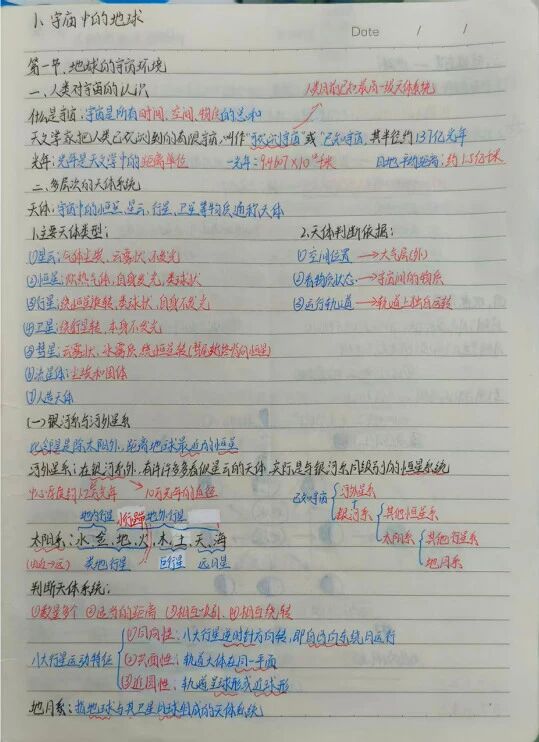 1、宇宙中的地球
Date / /
第一节、地球的宇宙环境
一、人类对宇宙的认识
人类目前已知最高一级天体系统
什么是宇宙:宇宙是所有时间、空间、物质的总和
天文学家把人类已观测到的有限宇宙,叫作"可观测宇宙"或"已知宇宙",其半径约137亿光年
光年:光年是天文学中的距离单位 一光年:9.4607×10¹²千米 日地平均距离:约1.5亿千米
二、多层次的天体系统
天体:宇宙中的恒星、星云、行星、卫星等物质通称天体
1.主要天体类型: 2.天体判断依据:
①星云:气体尘埃、云雾状、不发光 ①空间位置→大气层(外)
②恒星:炽热气体,自身发光,类球状 ②看物质状态→宇宙间的物质
③行星:绕恒星旋转,类球状,自身不发光 ③运行轨道→轨道上独自运转
④卫星:绕行星转,本身不发光
⑤彗星:云雾状,冰雾质,绕恒星转
⑥流星体:尘埃和固体
⑦人造天体
(一)银河系与河外星系
比邻星是除太阳外,距离地球最近的恒星
河外星系:在银河系外,有许许多多看似星云的天体,实际是与银河系同级别的恒星系统
10万光年的直径
已知宇宙 河外星系
银河系 其他恒星系
太阳系 其他行星系
地月系
地内行星 地外行星
太阳系:水、金、地、火、木、土、天、海
(由近→远) 类地行星 巨行星 远日星
判断天体系统:
①数量多个 ②适当的距离 ③相互吸引 ④相互绕转
八大行星运动特征
①同向性:八大行星逆时针方向转,即自西向东绕日运行
②共面性:轨道大体在同一平面
③近圆性:轨道呈球形或近球形
地月系:指地球与其卫星月球组成的天体系统